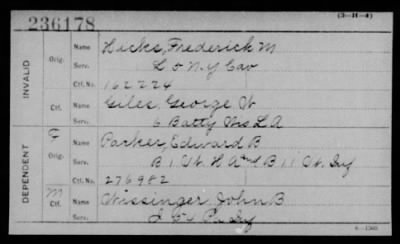 236178
(3-H-4)
INVALID
Orig.
Name Hicks, Frederick M
Serv. L 0 N.Y Cav
Ctf. No. 162224
Ctf.
Name Giles, George W
Serv. 6 Batty Wis L A
DEPENDENT
Orig.
Name Parker, Edward B
Serv. B 1 Vt. H A & B 11 Vt. Inf
Ctf. No. 276982
M
Ctf.
Name Wissinger, John B
Serv. Pa Inf
6-1560